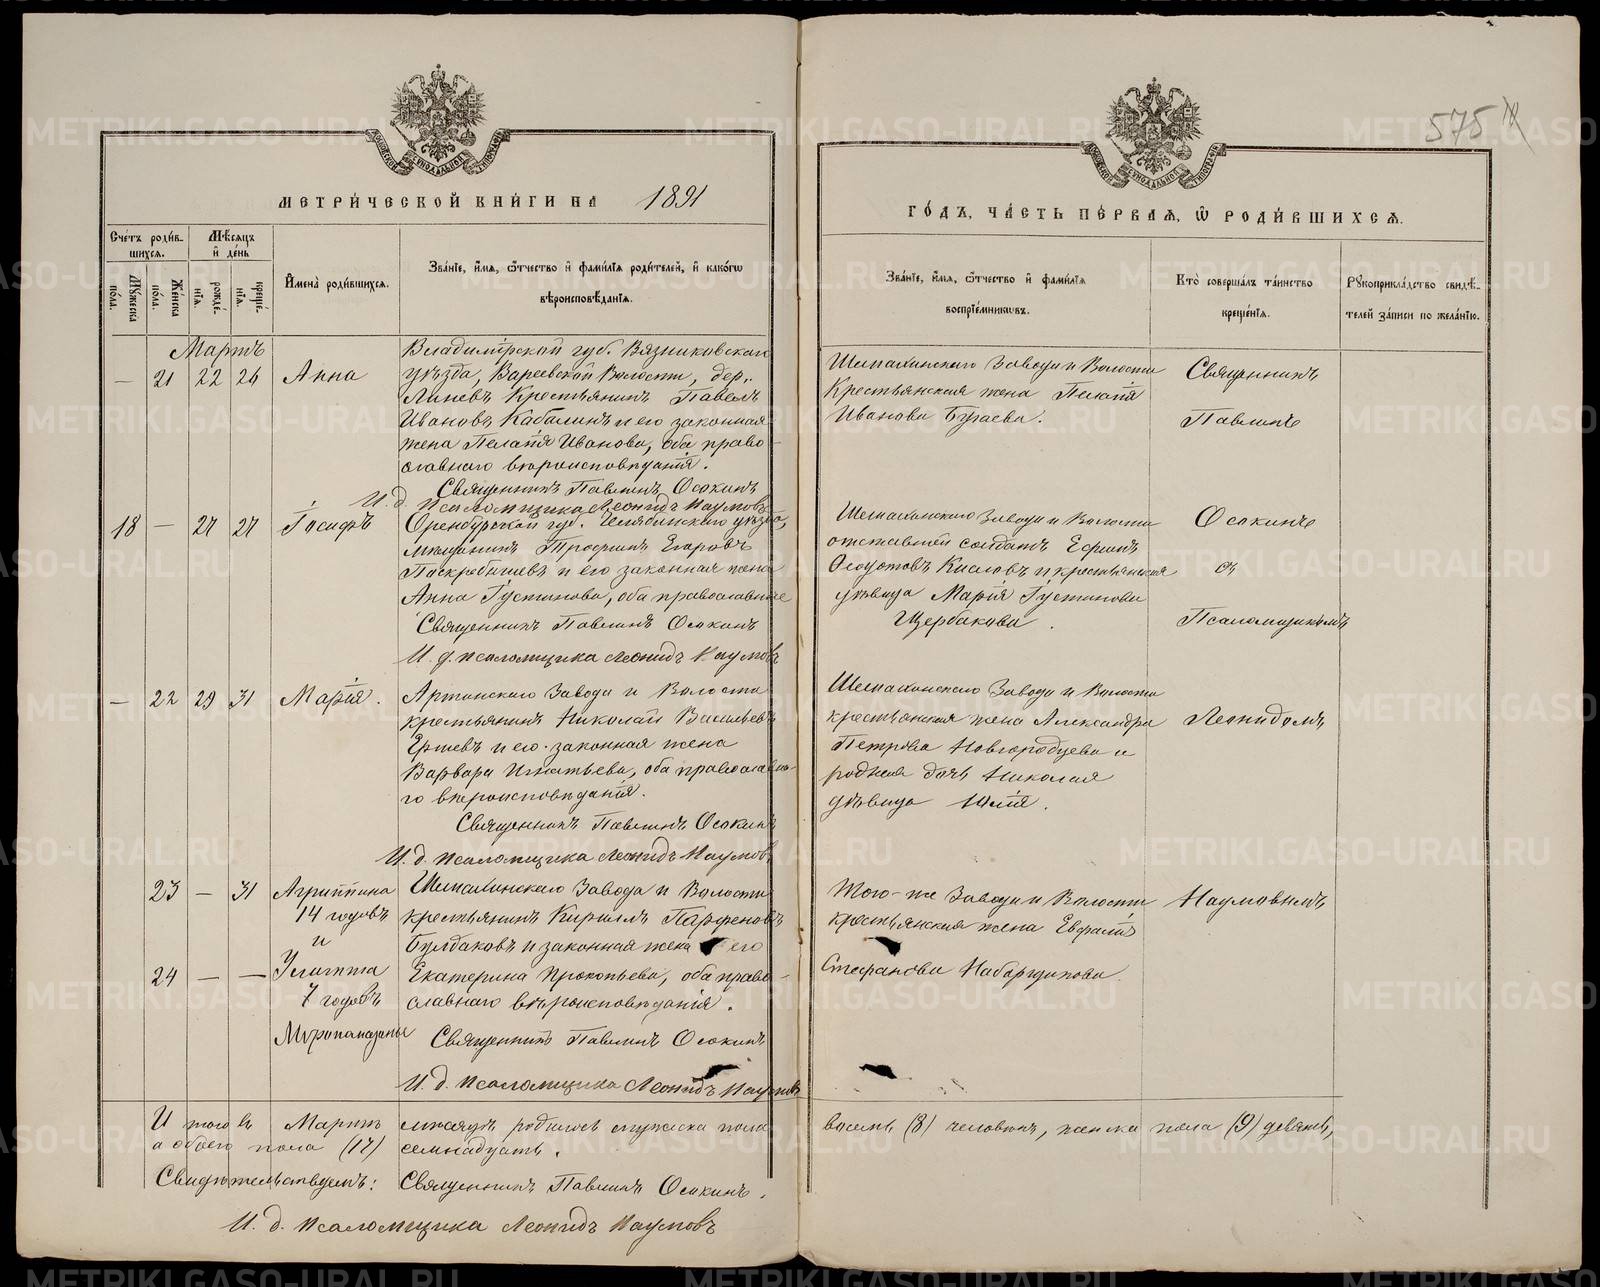 575
МЕТРИ́ЧЕСКОЙ КНИ́ГИ НА 1891
ГО́ДЪ, ЧА́СТЬ ПЕ́РВАЯ, Ѿ РОДИ́ВШИХСЯ.
Сче́тъ роди́в-
шихся.
Мꙋжеска по́ла.
Же́нска по́ла.
Мѣ́сяцъ
и҆ де́нь
рожде́-
нїя.
креще́-
нїя.
И҆мена̀ роди́вшихся.
Зва́нїе, и҆́мя, ѻ҆́тчество и҆ фами́лїя роди́телей, и҆ како́гѡ
вѣроисповѣ́данїя.
Зва́нїе, и҆́мя, ѻ҆́тчество и҆ фами́лїя
воспрїе́мниковъ.
Кто̀ соверша́лъ та́инство
креще́нїя.
Рꙋкоприкла́дство свидѣ́-
телей за́писи по жела́нїю.
Мартъ
— 21 22 26 Анна
Владимірской губ. Вязниковскаго
уѣзда, Вареевской Волости, дер.
Линевъ Крестьянинъ Павелъ
Ивановъ Кабалинъ и его законная
жена Пелагія Иванова, оба право-
славнаго вѣроисповѣданія.
Священникъ Павлинъ Осокинъ
И. д. Псаломщика Леонидъ Наумовъ
Шемахинскаго Завода и Волости
Крестьянская жена Пелагія
Иванова Бугаева.
Священникъ
Павлинъ
18 — 27 27 Іосифъ
Оренбургской губ. Челябинскаго уѣзда,
мѣщанинъ Трофимъ Егоровъ
Поскребышевъ и его законная жена
Анна Іустинова, оба православные
Священникъ Павлинъ Осокинъ
И. д. псаломщика Леонидъ Наумовъ
Шемахинскаго Завода и Волости
отставной солдатъ Ефимъ
Ѳедотовъ Кисловъ и крестьянская
дѣвица Марія Іустинова
Щербакова.
Осокинъ
съ
Псаломщикомъ
— 22 29 31 Марія.
Артинскаго Завода и Волости
крестьянинъ Николай Васильевъ
Ершевъ и его законная жена
Варвара Игнатьева, оба православна-
го вѣроисповѣданія.
Священникъ Павлинъ Осокинъ
И. д. псаломщика Леонидъ Наумовъ
Шемахинскаго Завода и Волости
крестьянская жена Александра
Петрова Новгородцева и
родная дочь Николая
дѣвица Юлія.
Леонидомъ
23 — 31 Агриппина
14 годовъ
и
24 — — Улитта
7 годовъ
Мѵропомазаны
Шемахинскаго Завода и Волости
крестьянинъ Кириллъ Парфеновъ
Булдаковъ и законная жена его
Екатерина Прокопьева, оба право-
славнаго вѣроисповѣданія.
Священникъ Павлинъ Осокинъ
И. д. Псаломщика Леонидъ Наумовъ
Того-же Завода и Волости
крестьянская жена Евфалія
Стефанова
Наумовымъ
И того въ Мартѣ мѣсяцѣ родилось мужеска пола восемь (8) человѣкъ, женска пола (9) девять,
а обоего пола (17) семнадцать.
Свидѣтельствуемъ: Священникъ Павлинъ Осокинъ.
И. д. псаломщика Леонидъ Наумовъ